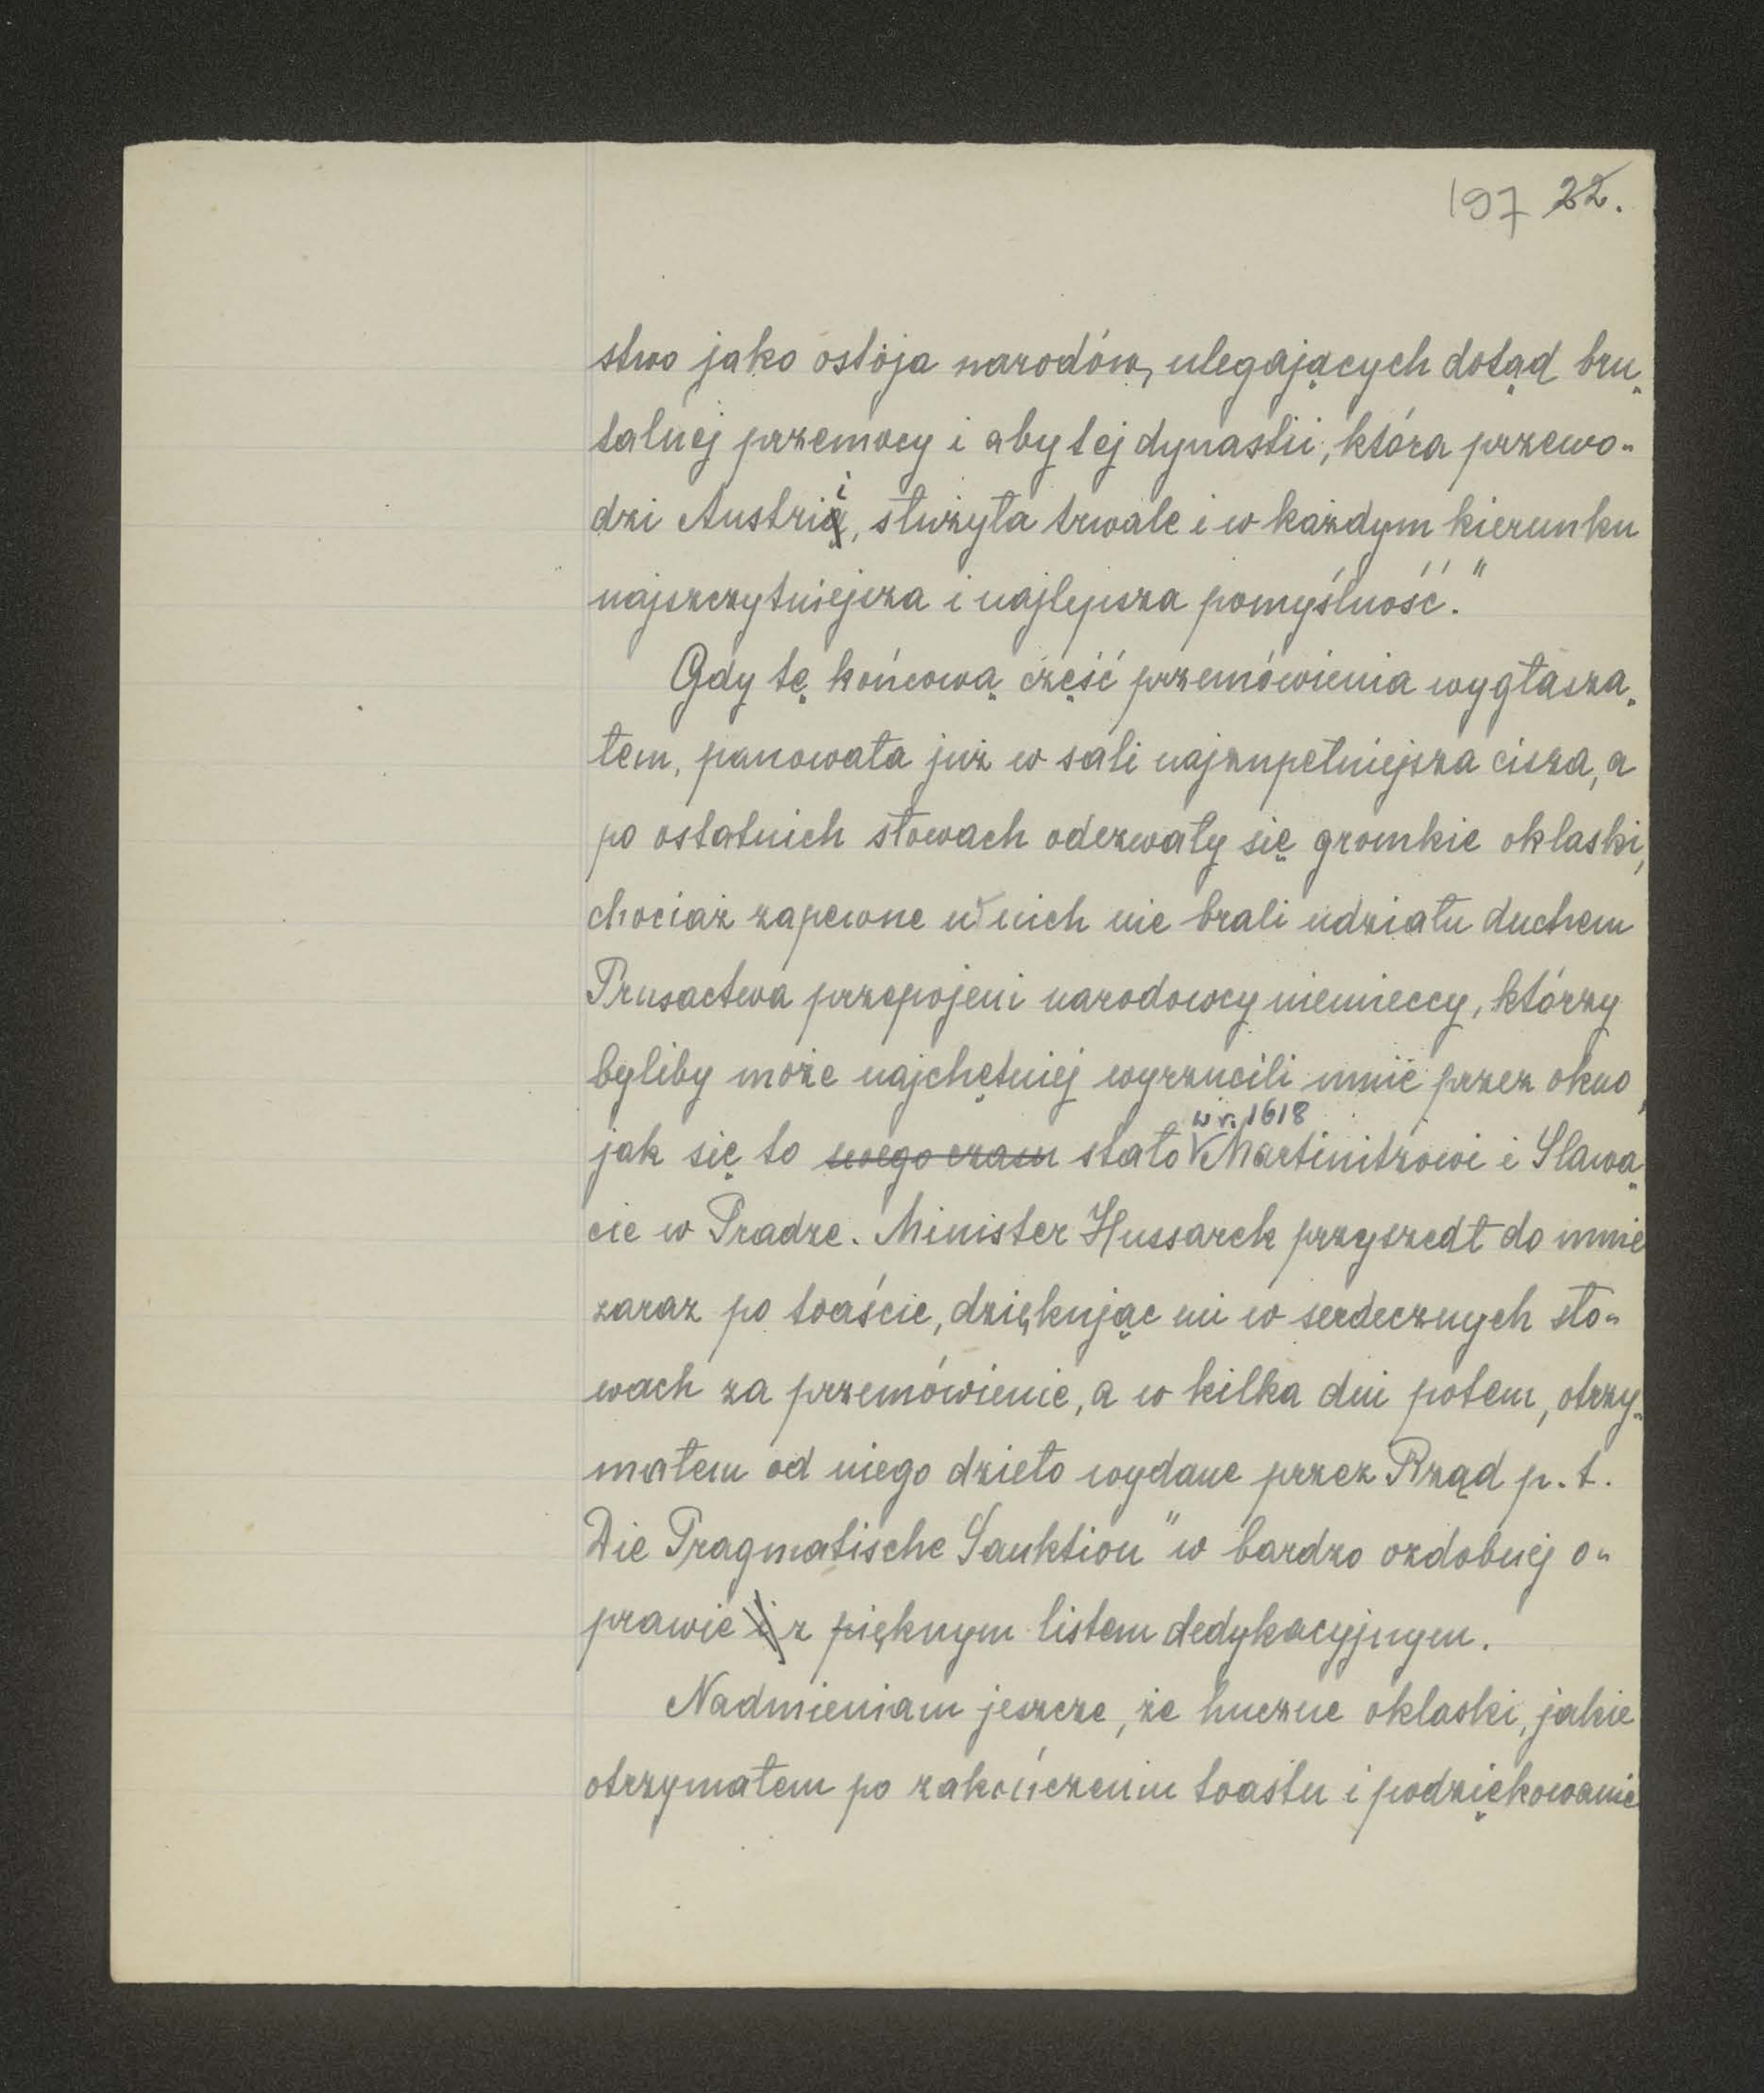 197 22.
stwo jako ostoja narodów, ulegających dotąd bru-
talnej przemocy i aby tej dynastii, która przewo-
dzi Austrii, służyła trwale i w każdym kierunku
najszczytniejsza i najlepsza pomyślność."
Gdy tę końcową część przemówienia wygłasza-
łem, panowała już w sali najzupełniejsza cisza, a
po ostatnich słowach odezwały się gromkie oklaski,
chociaż zapewne w nich nie brali udziału duchem
Prusactwa przepojeni narodowcy niemieccy, którzy
byliby może najchętniej wyrzucili mnie przez okno,
w r. 1618
jak się to swego czasu stało Martinitzowi i Slawa-
cie w Pradze. Minister Hussarek przyszedł do mnie
zaraz po toaście, dziękując mi w serdecznych sło-
wach za przemówienie, a w kilka dni potem, otrzy-
małem od niego dzieło wydane przez Rząd p. t.
Die Pragmatische Sanktion" w bardzo ozdobnej o-
prawie i z pięknym listem dedykacyjnym.
Nadmieniam jeszcze, że huczne oklaski, jakie
otrzymałem po zakończeniu toastu i podziękowanie